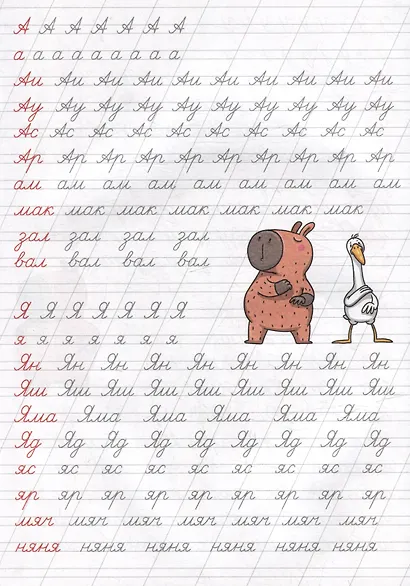 А А А А А А А
а а а а а а а а а
Аи Аи Аи Аи Аи Аи Аи Аи Аи Аи
Ау Ау Ау Ау Ау Ау Ау Ау Ау Ау
Ас Ас Ас Ас Ас Ас Ас Ас Ас Ас
Ар Ар Ар Ар Ар Ар Ар Ар Ар Ар
ам ам ам ам ам ам ам ам ам
мак мак мак мак мак мак мак
зал зал зал зал
вал вал вал вал
Я Я Я Я Я Я Я
я я я я я я я я
Ян Ян Ян Ян Ян Ян Ян Ян Ян
Яш Яш Яш Яш Яш Яш Яш Яш Яш
Яма Яма Яма Яма Яма Яма
Яд Яд Яд Яд Яд Яд Яд Яд Яд
яс яс яс яс яс яс яс яс яс
яр яр яр яр яр яр яр яр яр
мяч мяч мяч мяч мяч мяч мяч
няня няня няня няня няня няня